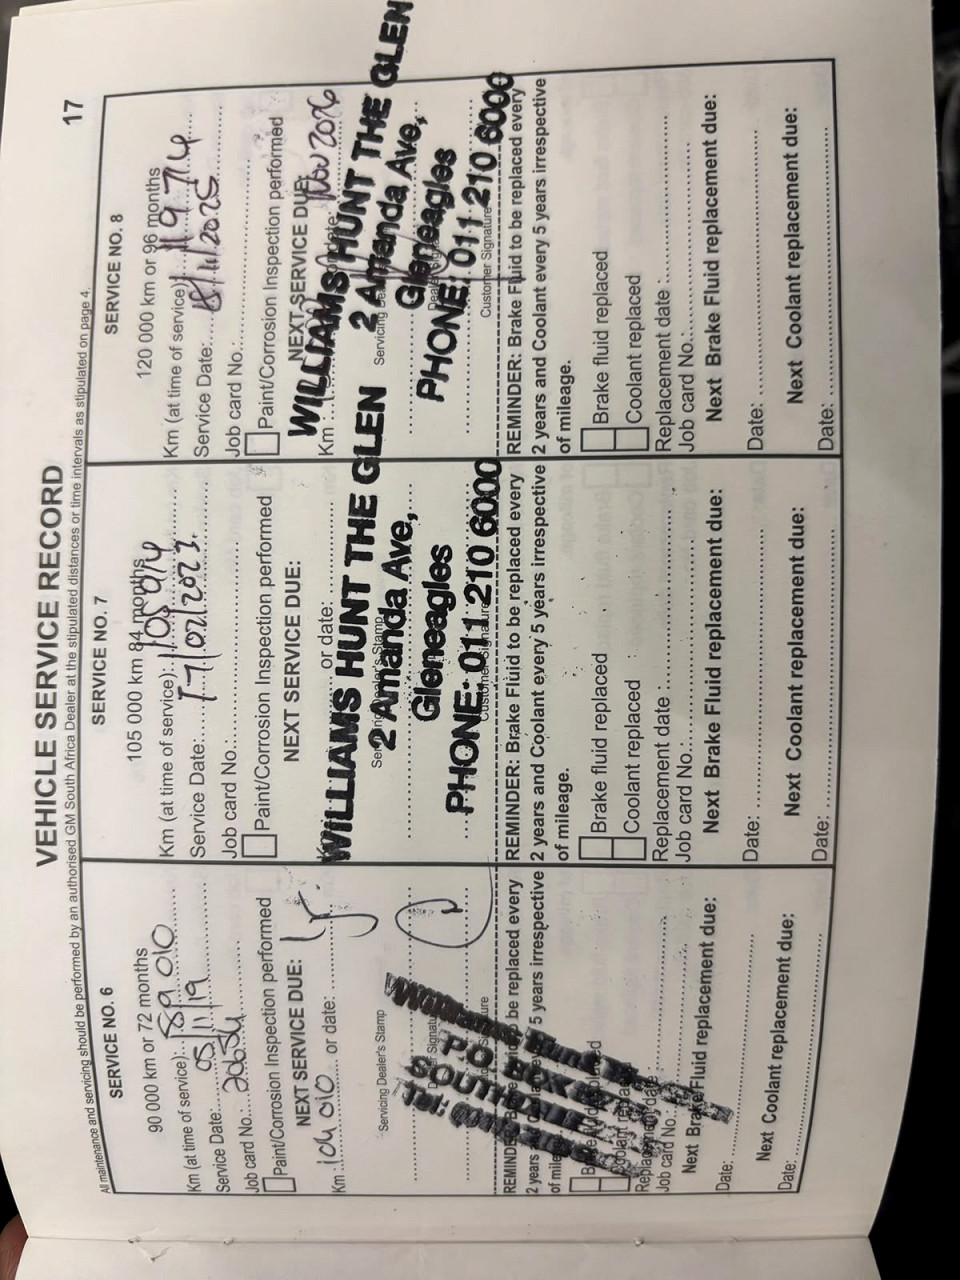 17
VEHICLE SERVICE RECORD
All maintenance and servicing should be performed by an authorised GM South Africa Dealer at the stipulated distances or time intervals as stipulated on page 4.
SERVICE NO. 6
90 000 km or 72 months
Km (at time of service): 89 010
Service Date: 05/11/19
Job card No.:
Paint/Corrosion Inspection performed
NEXT SERVICE DUE:
Km 104 010 or date:
Servicing Dealer's Stamp
REMINDER: be replaced every
2 years 5 years irrespective
of
Job card No.
Next Brake Fluid replacement due:
Date:
Next Coolant replacement due:
Date:
SERVICE NO. 7
105 000 km 84 months
Km (at time of service):
Service Date: 17/02/2023
Job card No.:
Paint/Corrosion Inspection performed
NEXT SERVICE DUE:
or date:
WILLIAMS HUNT THE GLEN
2 Amanda Ave,
Gleneagles
PHONE: 011 210 6000
REMINDER: Brake Fluid to be replaced every
2 years and Coolant every 5 years irrespective
of mileage.
Brake fluid replaced
Coolant replaced
Replacement date :
Job card No.:
Next Brake Fluid replacement due:
Date:
Next Coolant replacement due:
Date:
SERVICE NO. 8
120 000 km or 96 months
Km (at time of service):
Service Date: 18/11/2025
Job card No.:
Paint/Corrosion Inspection performed
NEXT SERVICE DUE:
Km Nov 2026
WILLIAMS HUNT THE GLEN
2 Amanda Ave,
Gleneagles
PHONE: 011 210 6000
Customer Signature
REMINDER: Brake Fluid to be replaced every
2 years and Coolant every 5 years irrespective
of mileage.
Brake fluid replaced
Coolant replaced
Replacement date :
Job card No.:
Next Brake Fluid replacement due:
Date:
Next Coolant replacement due:
Date: